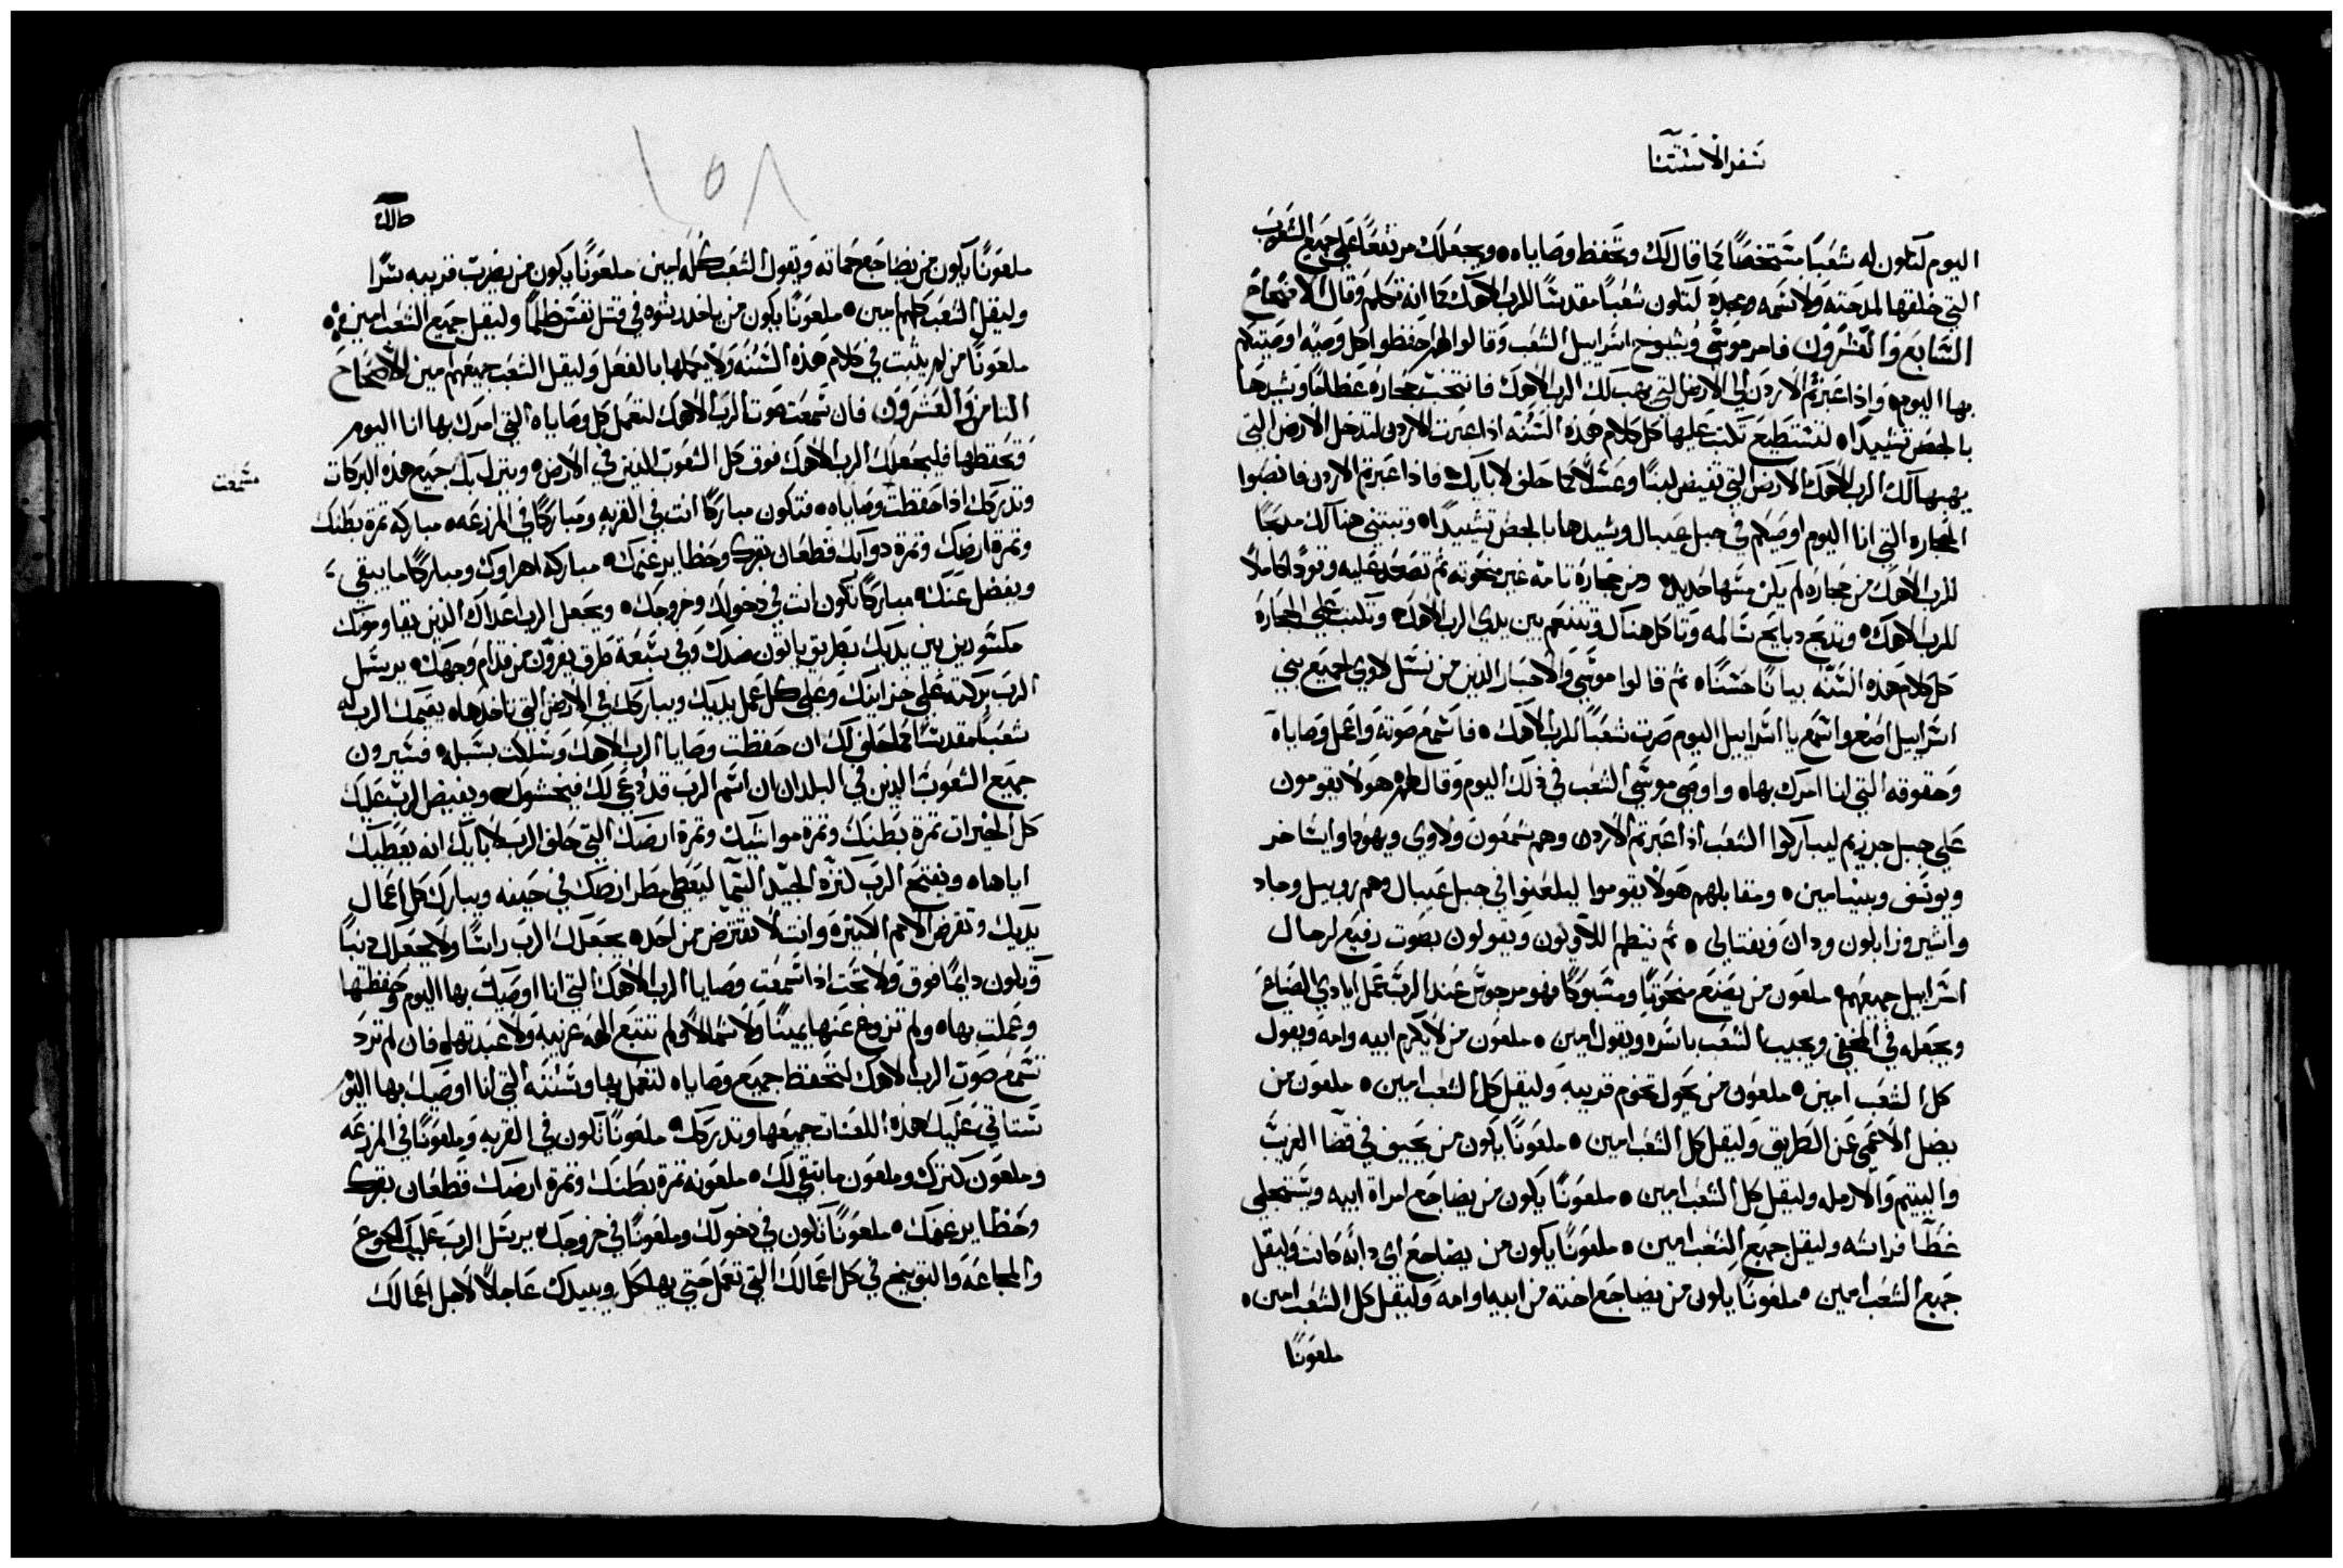 سفر الاستثنا
اليوم لتكون له شعبًا مستخصًا كما قال لك وتحفظ وصاياه ويجعلك مرتفعًا علي جميع الشعوب
التي خلقها لمدحته ولاسمه ومجده لتكون شعبًا مقدسًا للرب الاهك كما انه تكلم وقال الاصحاح
السابع والعشرون فامر موسي وشيوخ اسراييل الشعب وقالوا لهم احفظوا كل وصيه اوصيتكم
بها اليوم واذا عبرتم الاردن الي الارض التي يهب لك الرب الاهك فانتخب حجاره عظامًا وتشيدها
بالجص تشييدًا لتستطيع تكتب عليها كل كلام هذه السنه اذا عبرت الاردن لتدخل الارض التي
يهبها لك الرب الاهك الارض التي تفيض لبنًا وعسلًا كما حلف لابايك فاذا عبرتم الاردن فانصبوا
الحجاره التي انا اليوم اوصيكم في جبل عيبال وشيدها بالجص تشييدًا وتبتني هناك مدبحًا
للرب الاهك من حجاره لم يكن مسها حديد ومن حجارة تامه غير منحوته ثم تصعد عليه وقودًا كاملًا
للرب الاهك وتدبح دبايح سالمه وتاكل هناك وتتنعم بين يدي الرب الاهك وتكتب علي الحجاره
كل كلام هذه السنه بيانًا حسنًا ثم قالوا موسي والاحبار الذين من نسل لاوي لجميع بني
اسراييل اصغ واسمع يا اسراييل اليوم صرت شعبًا للرب الاهك فاسمع صوته واعمل وصاياه
وحقوقه التي انا امرك بها واوصي موسي الشعب في ذلك اليوم وقال لهم هولا يقومون
علي جبل جرزيم ليباركوا الشعب اذا عبرتم الاردن وهم شمعون ولاوي ويهودا وايساخر
ويوسف وبنيامين ومقابلهم هولا يقوموا ليلعنوا في جبل عيبال وهم روبيل وجاد
واشير وزابلون ودان ونفتالي ثم ينطم اللاويون ويقولون بصوت رفيع لرجال
اسراييل جميعهم ملعون من يصنع منحوتًا ومسبوكًا فهو مرجوس عند الرب عمل ايادي الصناع
ويجعله في الخفي ويجيب الشعب باسره ويقول امين ملعون من لا يكرم ابيه وامه ويقول
كل الشعب امين ملعون من يحول تخوم قريبه وليقل كل الشعب امين ملعون من
يضل الاعمي عن الطريق وليقل كل الشعب امين ملعونًا يكون من يحيف في قضا الغريب
واليتيم والارمله وليقل كل الشعب امين ملعونًا يكون من يضاجع امراة ابيه ويستجلي
غطا فراشه وليقل جميع الشعب امين ملعونًا يكون من يضاجع اي دابه كانت وليقل
جميع الشعب امين ملعونًا يكون من يضاجع اخته من ابيه او امه وليقل كل الشعب امين
ملعونًا
١٥٨
ملعونًا يكون من يضاجع حماته ويقول الشعب كله امين ملعونًا يكون من يضرب قريبه سرًا
وليقل الشعب كلهم امين ملعونًا يكون من ياخذ رشوه في قتل نفس ظلمًا وليقل جميع الشعب امين
ملعونًا من لم يثبت في كلام هذه السنه ولا يكملها بالفعل وليقل الشعب جميعهم امين الاصحاح
الثامن والعشرون فان سمعت صوت الرب الاهك لتعمل كل وصاياه التي امرك بها انا اليوم
وتحفظها فليجعلك الرب الاهك فوق كل الشعوب الذين في الارض وينزل بك جميع هذه البركات
وتدركك اذا حفظت وصاياه فتكون مباركًا انت في القريه ومباركًا في المزرعه مباركه ثمرة بطنك
سمعت
وثمرة ارضك وثمرة دوابك قطعان بقرك وحظاير غنمك مباركه اهراوك ومباركًا ما يبقي
ويفضل عنك مباركًا تكون انت في دخولك وخروجك ويجعل الرب اعداك الذين يقاوموك
مكسورين بين يديك بطريق ياتون ضدك وفي سبعة طرق يفرون من قدام وجهك يرسل
الرب بركته علي خزاينك وعلي كل عمل يديك ويباركك في الارض التي تاخذها يقيمك الرب له
شعبًا مقدسًا كما حلف لك ان حفظت وصايا الرب الاهك وسلكت بسبله فسيرون
جميع الشعوب الذين في البلدان ان اسم الرب قد دعي لك فيخشوك ويفيض الرب عليك
كل الخيرات ثمرة بطنك وثمرة مواشيك وثمرة ارضك التي حلف الرب لابايك انه يعطيك
اياها ويفتح الرب كنزه الجيد السما ليعطي مطر ارضك في حينه ويبارك كل اعمال
يديك وتقرض الامم الكثيره وانت لا تقترض من احد يجعلك الرب راسًا ولا يجعلك دنبًا
وتكون دايمًا فوق ولا تحت اذا سمعت وصايا الرب الاهك التي انا اوصيك بها اليوم وحفظتها
وعملت بها ولم تزوغ عنها يمينًا ولا شمالًا ولم تتبع الهه غريبه ولا عبدتها فان لم ترد
تسمع صوت الرب الاهك لتحفظ جميع وصاياه لتعمل بها وسننه التي انا اوصيك بها اليوم
ستاتي عليك هذه اللعنات جميعها وتدركك ملعونًا تكون في القريه وملعونًا في المزرعه
وملعون كنزك وملعون ما بقي لك ملعونه ثمرة بطنك وثمرة ارضك قطعان بقرك
وحظاير غنمك ملعونًا تكون في دخولك وملعونًا في خروجك يرسل الرب عليك الجوع
والمجاعه والتوبيخ في كل اعمالك التي تعمل حتي يهلكك ويبيدك عاجلًا لاجل اعمالك